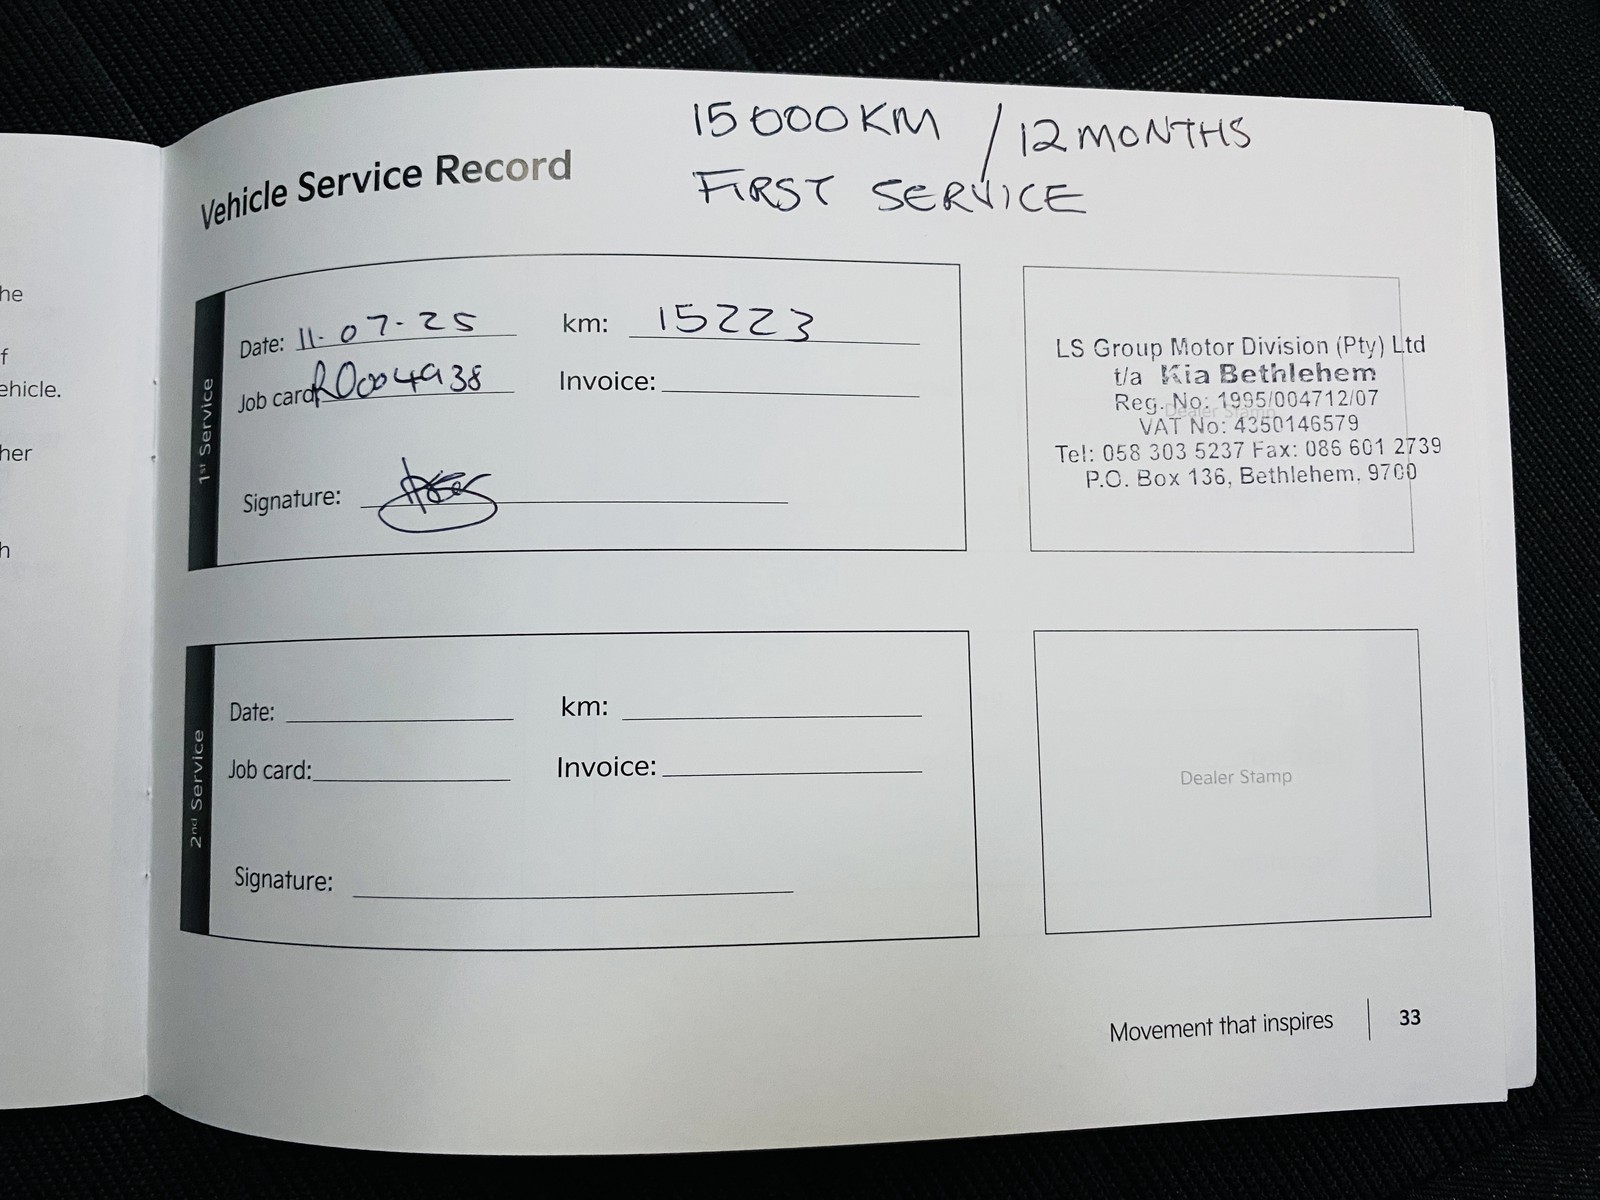 he
f
ehicle.
her
h
Vehicle Service Record
15 000 KM / 12 MONTHS
FIRST SERVICE
1st Service
Date: 11-07-25 km: 15223
Job card: R0004938 Invoice:
Signature:
LS Group Motor Division (Pty) Ltd
t/a Kia Bethlehem
Reg. No: 1995/004712/07
Dealer Stamp
VAT No: 4350146579
Tel: 058 303 5237 Fax: 086 601 2739
P.O. Box 136, Bethlehem, 9700
2nd Service
Date: km:
Job card: Invoice:
Signature:
Dealer Stamp
Movement that inspires | 33